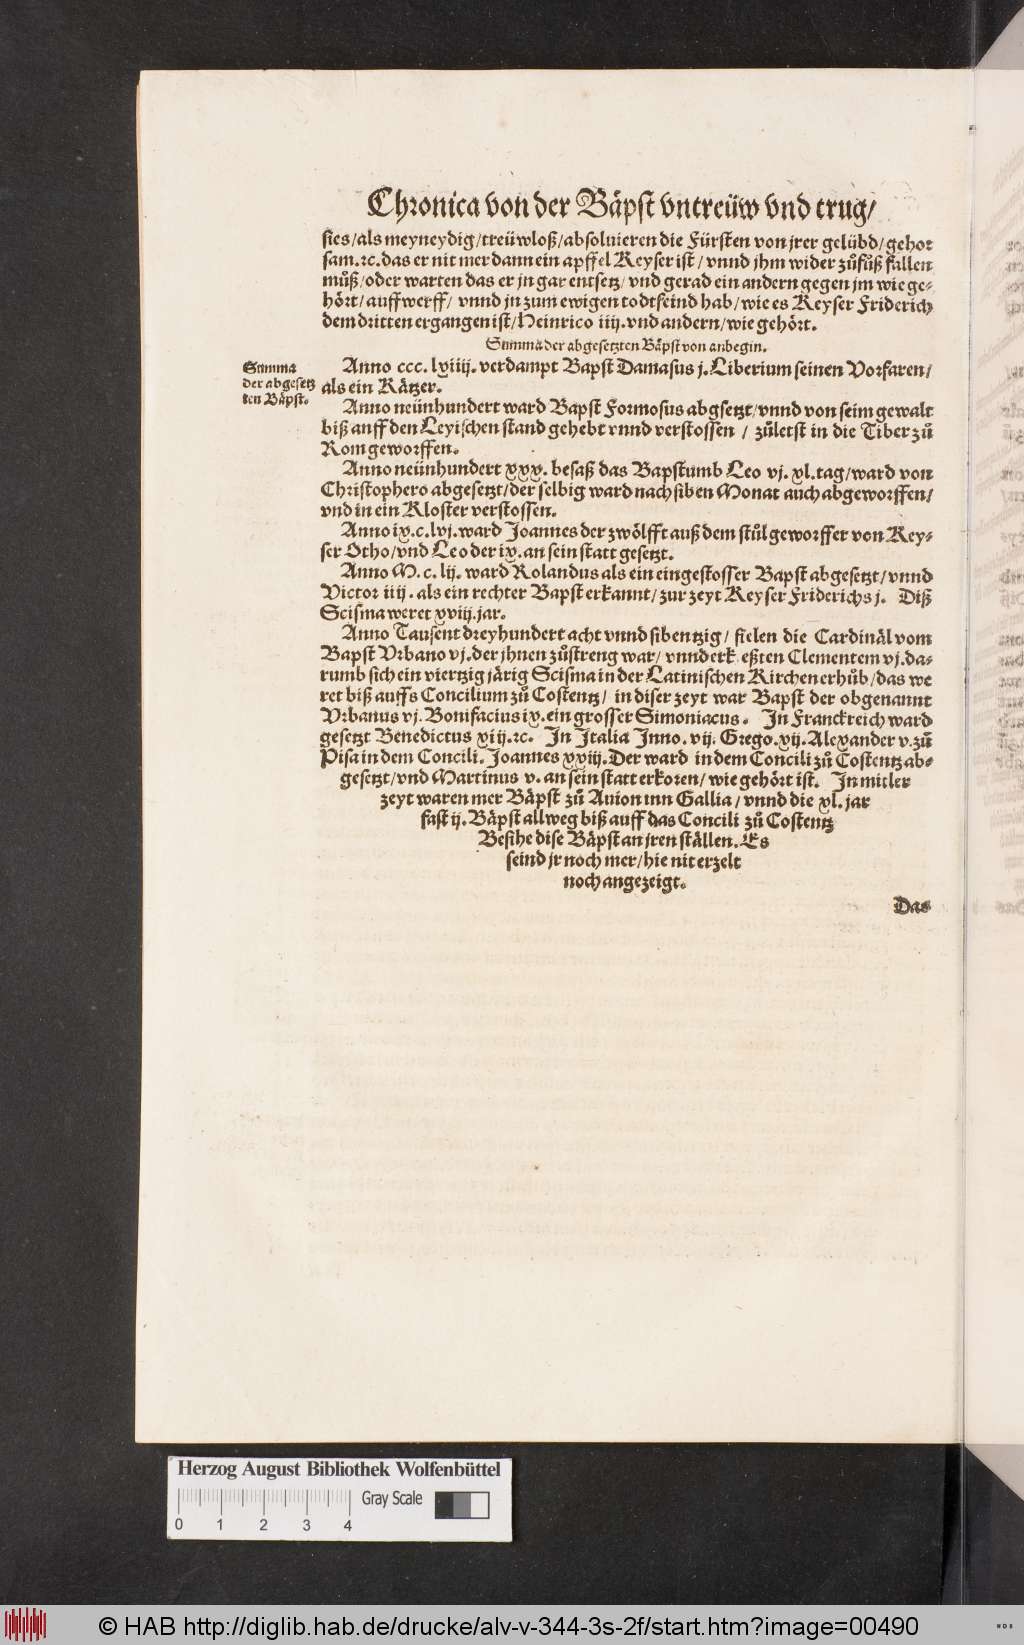 Chronica von der Bäpst vntreüw vnd trug/
sies/als meyneydig/treüwloß/absoluieren die Fürsten von jrer gelübd/gehor
sam.ꝛc.das er nit mer dann ein apffel Keyser ist/vnnd jhm wider zůfůß fallen
můß/oder warten das er jn gar entsetz/vnd gerad ein andern gegen jm wie ge⸗
hört/auffwerff/vnnd jn zum ewigen todtfeind hab/wie es Keyser Friderich
dem dritten ergangen ist/Heinrico iiij.vnd andern/wie gehört.
Summa der abgesetzten Bäpst von anbegin.
Summa
der abgesetz
ten Bäpst.
Anno ccc. lviiij. verdampt Bapst Damasus j. Liberium seinen Vorfaren/
als ein Kätzer.
Anno neünhundert ward Bapst Formosus abgsetzt/vnnd von seim gewalt
biß auff den Leyischen stand gehebt vnnd verstossen / zůletst in die Tiber zů
Rom geworffen.
Anno neünhundert xxx. besaß das Bapstumb Leo vj. xl.tag/ward von
Christophero abgesetzt/der selbig ward nach siben Monat auch abgeworffen/
vnd in ein Kloster verstossen.
Anno ix.c.lvj.ward Joannes der zwölfft auß dem stůl geworffer von Key⸗
ser Otho/vnd Leo der ix. an sein statt gesetzt.
Anno M. c. lij. ward Rolandus als ein eingestosser Bapst abgesetzt/vnnd
Victor iiij. als ein rechter Bapst erkannt/zur zeyt Keyser Friderichs j. Diß
Scisma weret xviij.jar.
Anno Tausent dreyhundert acht vnnd sibentzig/ fielen die Cardinäl vom
Bapst Vrbano vj.der jhnen zůstreng war/vnnd erk eßten Clementem vj.da⸗
rumb sich ein viertzig järig Scisma in der Latinischen Kirchen erhůb/das we
ret biß auffs Concilium zů Costentz/ in diser zeyt war Bapst der obgenannt
Vrbanus vj. Bonifacius ix.ein grosser Simoniacus. In Franckreich ward
gesetzt Benedictus xiij.ꝛc. In Italia Inno. vij. Grego.xij. Alexander v.zů
Pisa in dem Concili. Joannes xxiij. Der ward in dem Concili zů Costentz ab⸗
gesetzt/vnd Martinus v. an sein statt erkoren/wie gehört ist. In mitler
zeyt waren mer Bäpst zů Auion inn Gallia/vnnd die xl. jar
fast ij. Bäpst allweg biß auff das Concili zů Costentz
Besihe dise Bäpst an jren ställen. Es
seind jr noch mer/hie nit erzelt
noch angezeigt.
Das
Herzog August Bibliothek Wolfenbüttel
Gray Scale
0 1 2 3 4
© HAB http://diglib.hab.de/drucke/alv-v-344-3s-2f/start.htm?image=00490